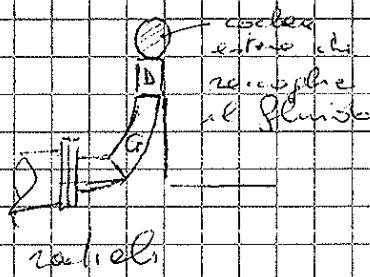 coclea
esterna che
raccoglie
il fluido
D
G
radiali